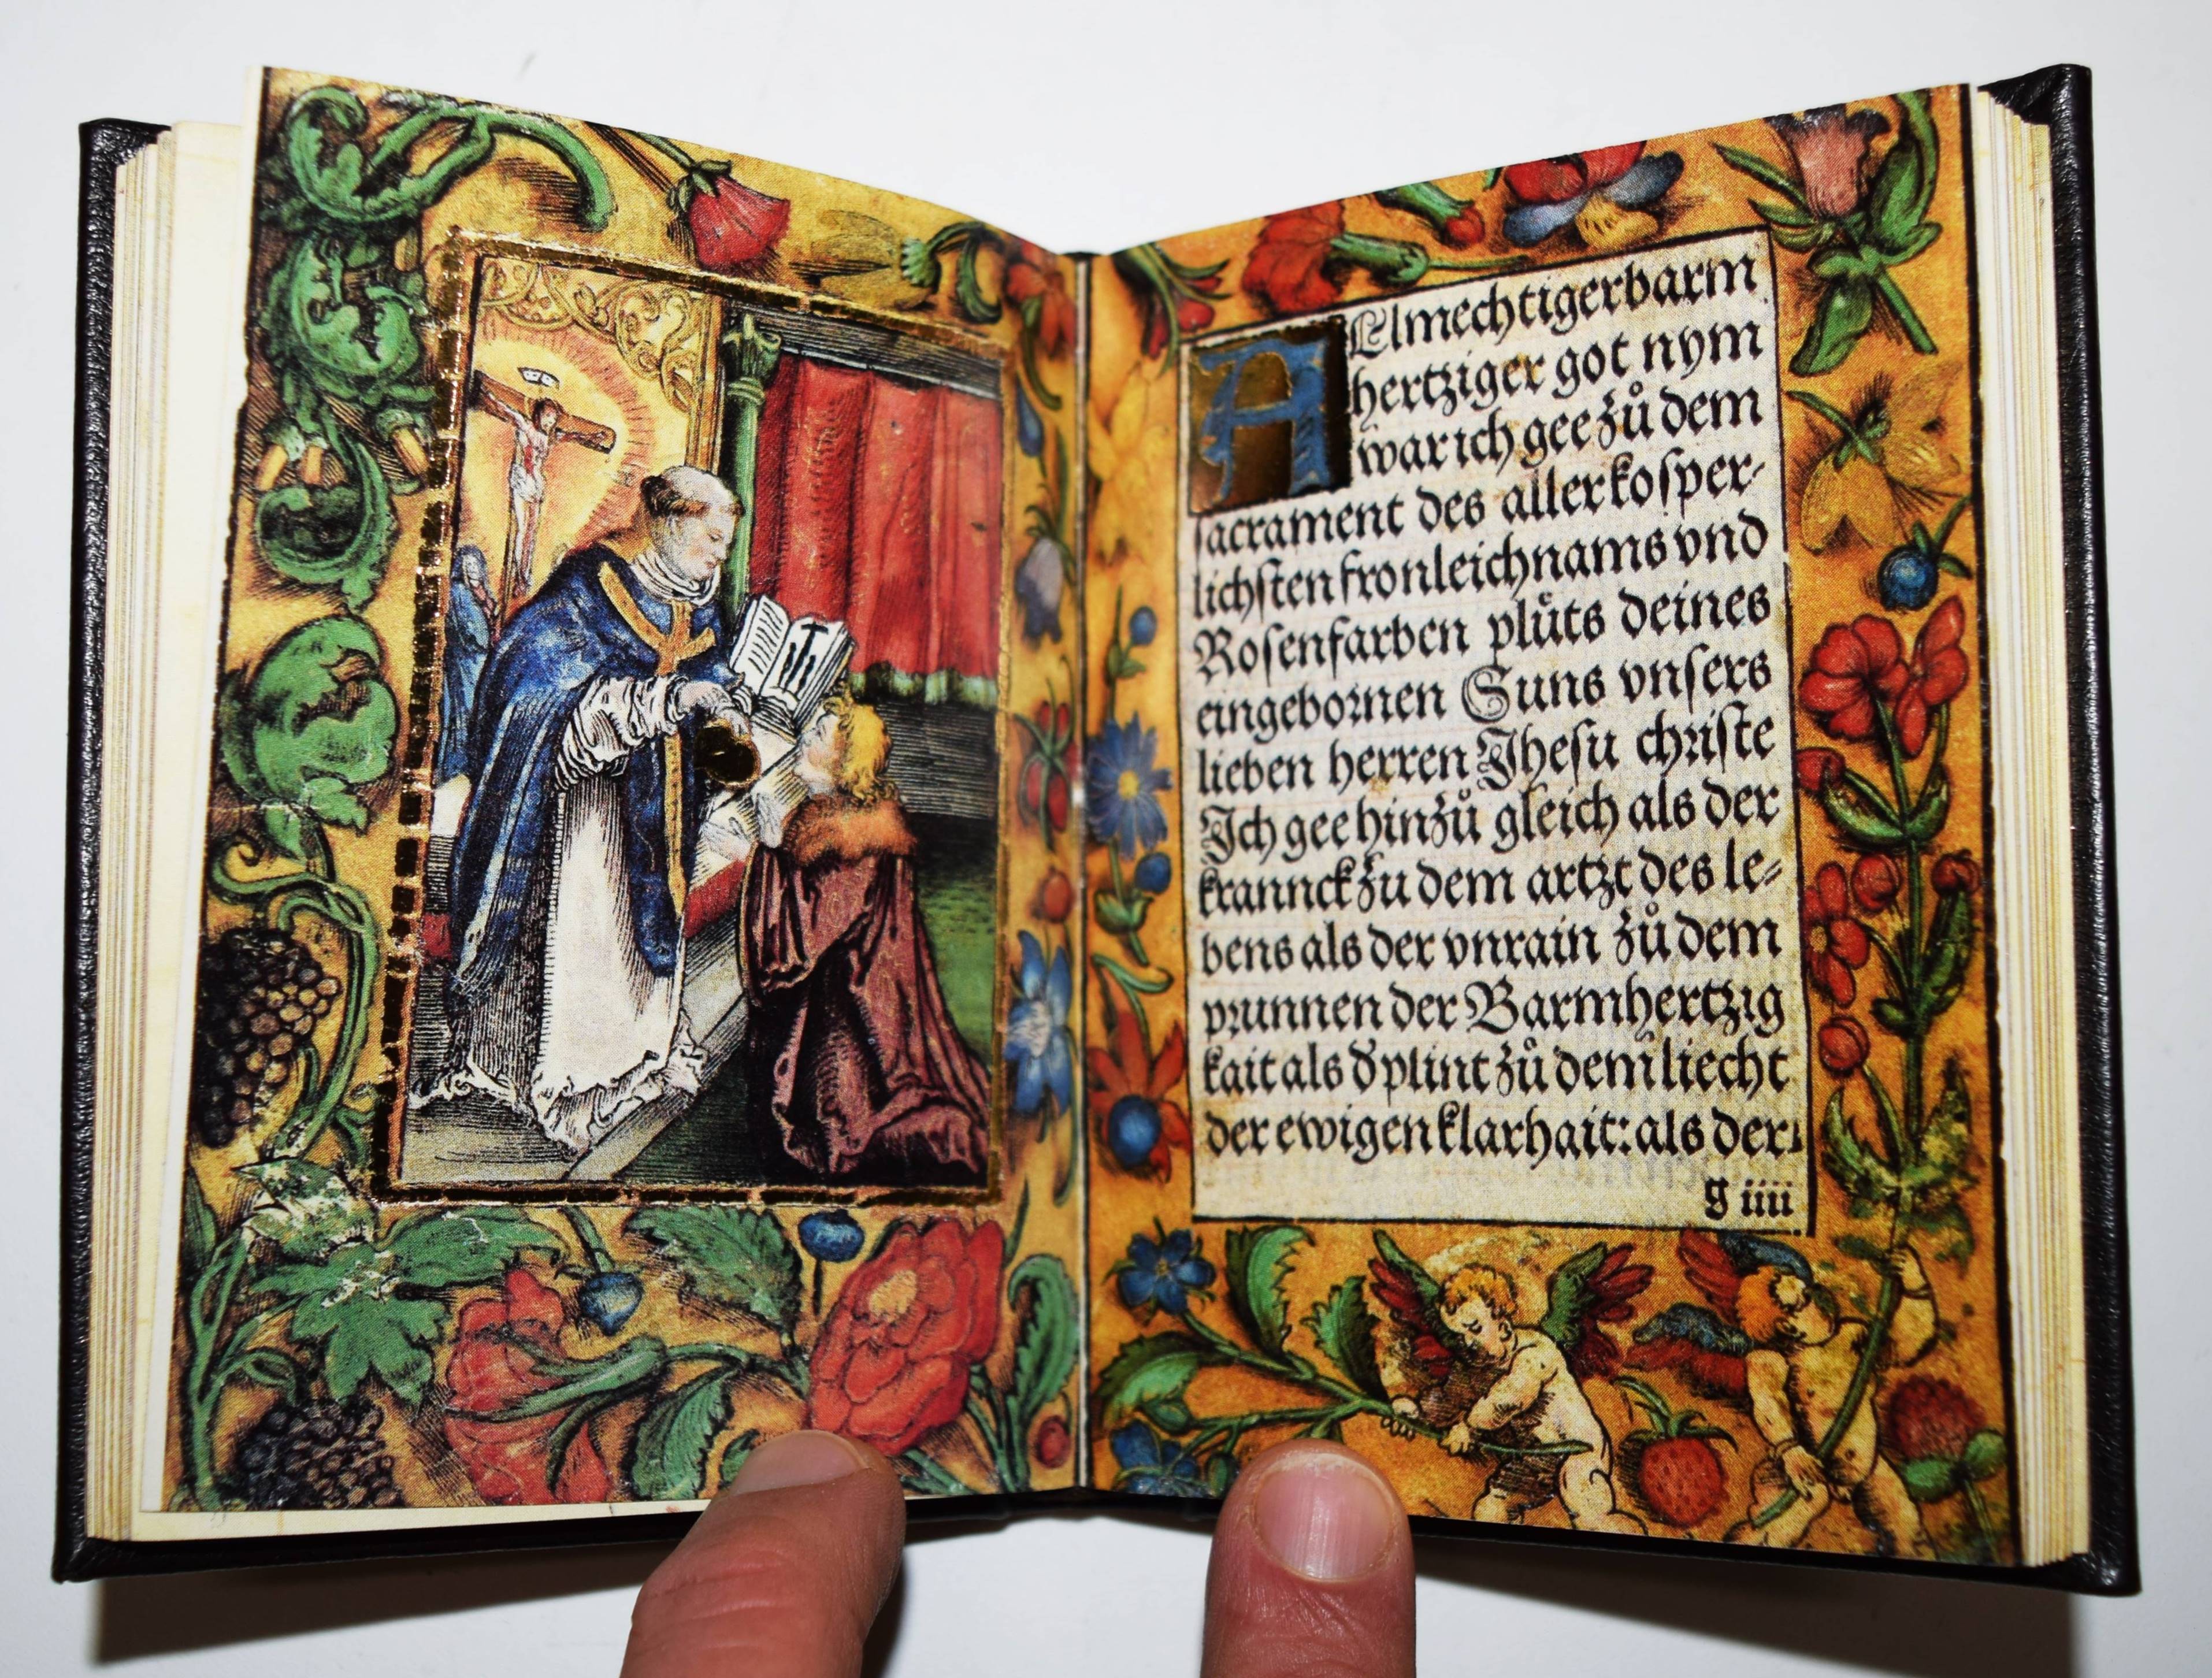 Almechtiger barm
hertziger got nym
war ich gee zů dem
sacrament des aller kosper-
lichsten fronleichnams vnd
Rosenfarben plůts deines
eingebornen Suns vnsers
lieben herren Jhesu christe
Ich gee hinzů gleich als der
kranck zu dem artzt des le-
bens als der vnrain zů dem
prunnen der Barmhertzig
kait als d̕ plint zů dem liecht
der ewigen klarhait: als der
g iiii